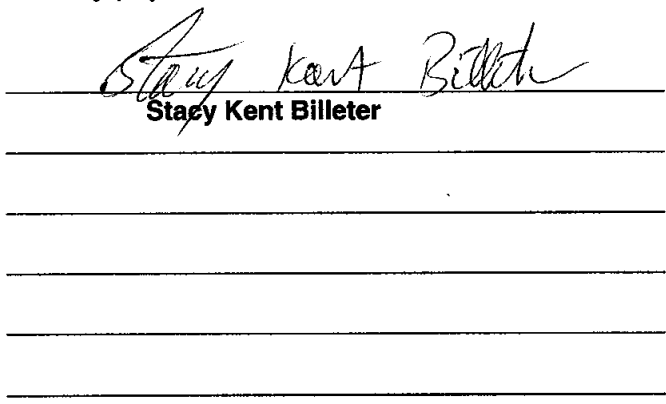 Stacy Kent Billeter
Stacy Kent Billeter